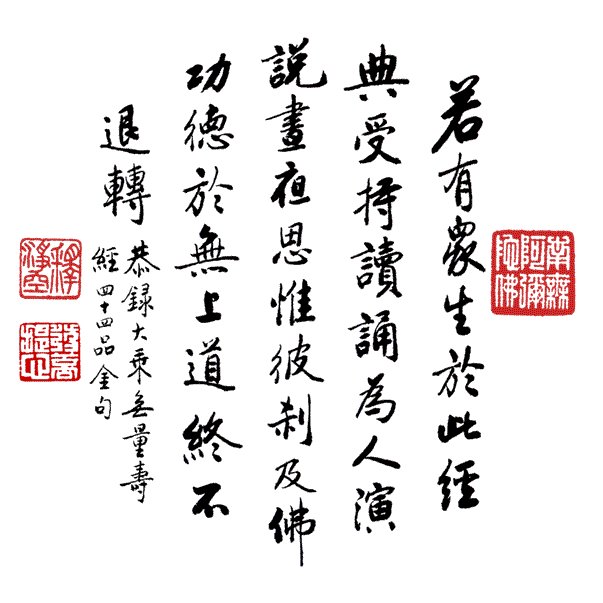 南無
阿彌
陀佛
若有眾生於此經
典受持讀誦為人演
說晝夜思惟彼剎及佛
功德於無上道終不
退轉
恭録大乘無量壽
經四十四品金句
釋
淨空